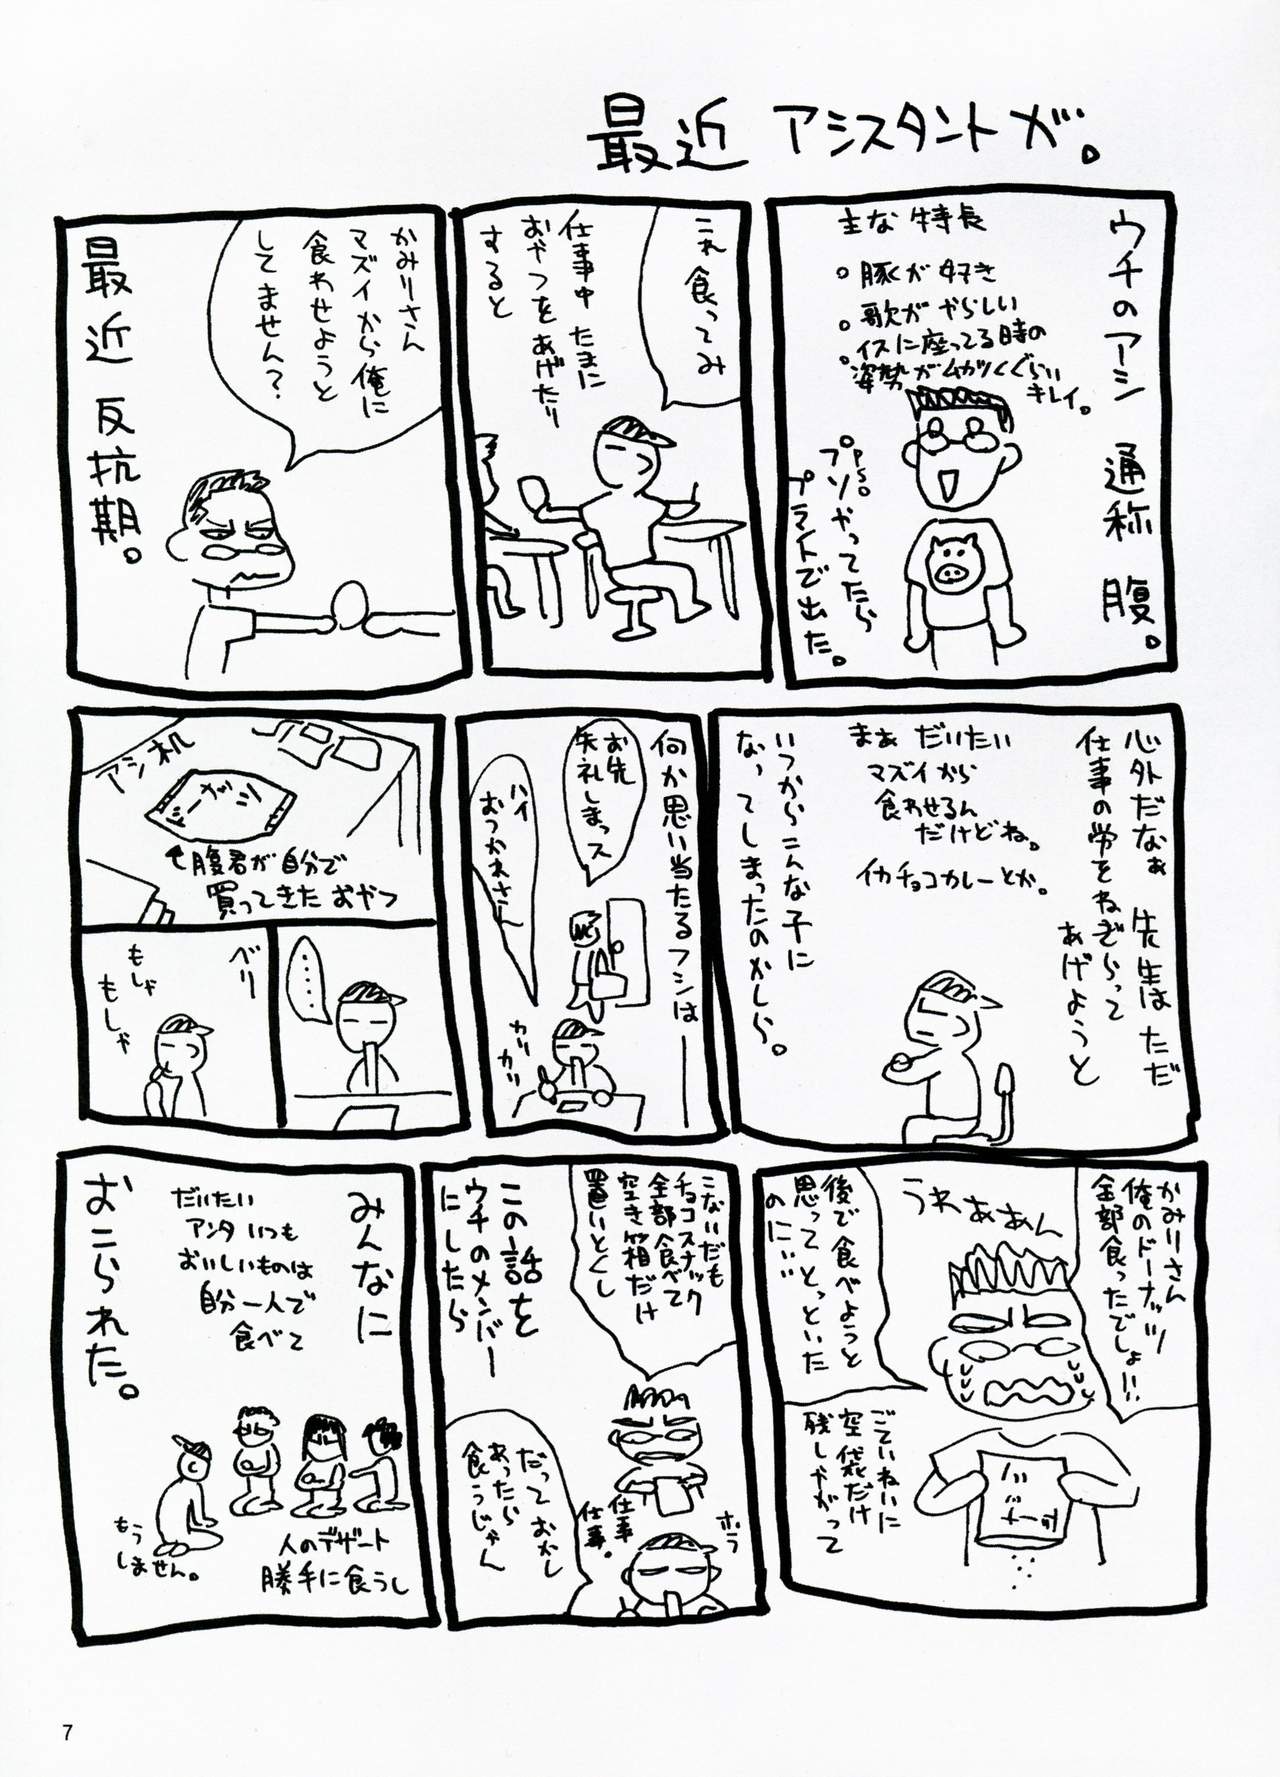 最近アシスタントが。
ウチのアシ 通称 腹。
主な特長
。豚が好き
。歌がやらしい
。イスに座ってる時の
姿勢がムカツくぐらい
キレイ。
プヨやってたら
プライトで出た。
これ食ってみ
仕事中 たまに
おやつをあげたり
すると
かみりさん
マズイから俺に
食わせようと
してません?
最近 反抗期。
心外だなぁ 先生はただ
仕事の労をねぎらって
あげようと
まぁ だいたい
マズイから
食わせるん
だけどね。
イカチョコカレーとか。
いつからこんな子に
なってしまったのかしら。
何か思い当たるフシは――
お先
失礼しまっス
ハイ
おつかれさん
カリ
カリ
アシ机
↑腹君が自分で
買ってきた おやつ
・・・・
ベリ
もしゃ
もしゃ
かみりさん
俺のドーナッツ
全部食ったでしょ!!
うわぁあん
後で食べようと
思ってとっといた
のに…
ごていねいに
空袋だけ
残しやがって
こないだも
チョコスナック
全部食べて
空き箱だけ
置いとくし
ホラ
仕事
仕事。
だっておかし
あったら
食うじゃん
この話を
ウチのメンバー
にしたら
みんなに
おこられた。
だいたい
アンタいつも
おいしいものは
自分一人で
食べて
人のデザート
勝手に食うし
もう
しません。
7